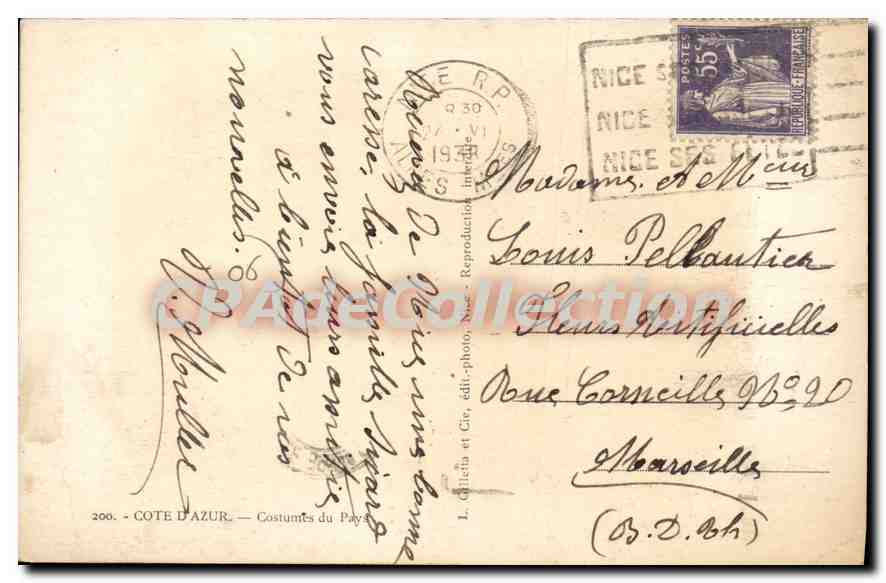 Recevez de Nice une bonne
caresse, la famille Sicard
vous envoie leurs amitiés
à bientôt de vos
nouvelles.
06
NICE R.P.
8 30
VI
193
ALPES MMES
POSTES
55c
REPUBLIQUE FRANÇAISE
NICE SES
NICE
NICE SES FÊTES
Madame & Mr
Louis Pellautier
Fleurs Artificielles
Rue Corneille No 20
Marseille
(B.D.Rh)
L. Gilletta et Cie, édit.-photo, Nice - Reproduction interdite
200. - COTE D'AZUR. — Costumes du Pays
CPAdeCollection